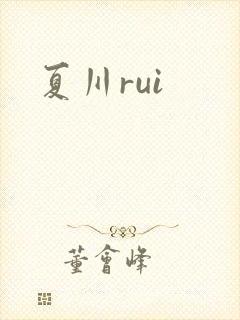 夏川rui
董會峰